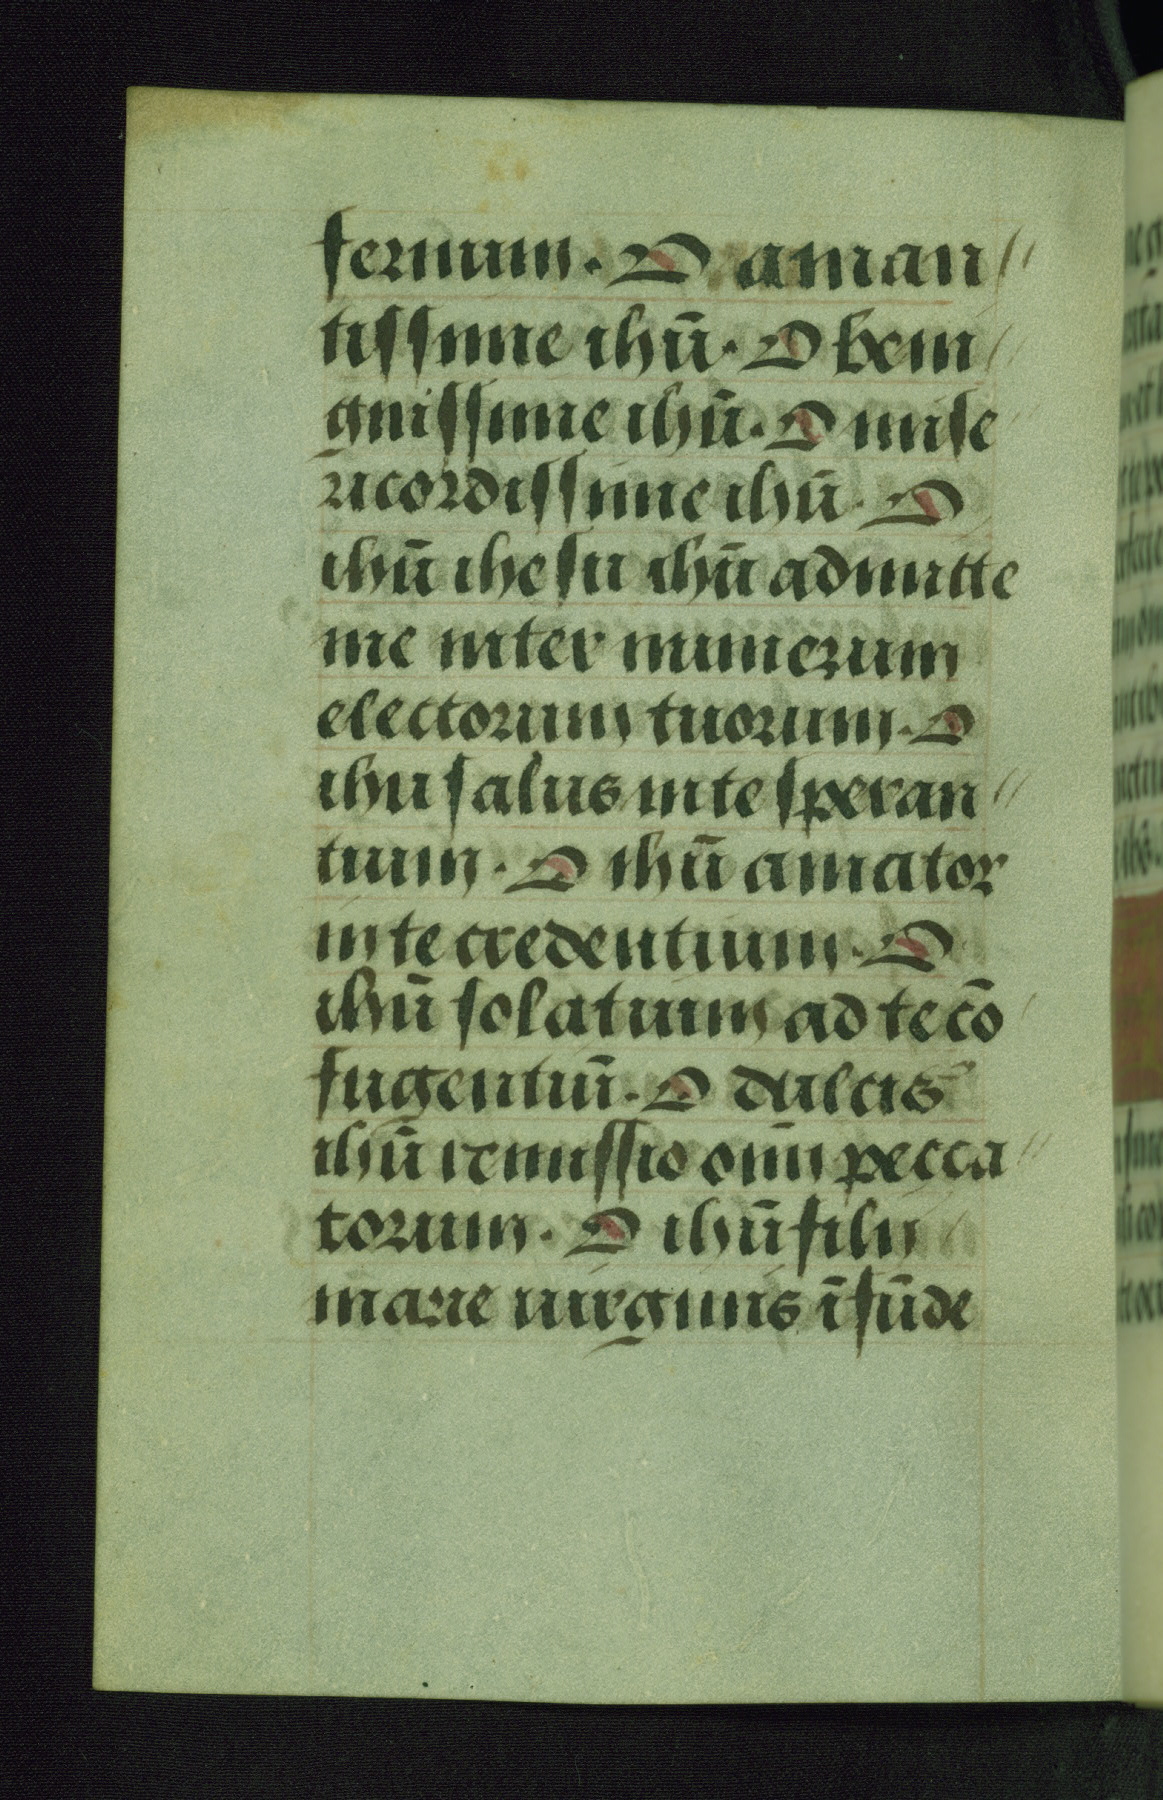 fernum. O aman//
tissime ihū. O beni/
gnissime ihū. O mise
ricordissime ihū. O
ihū ihesu ihū admitte
me inter numerum
electorum tuorum. O
ihu salus in te speran//
tium. O ihū amator
in te credentium. O
ihū solatium ad te cō
fugentiū. O dulcis
ihū remissio oīm pecca//
torum. O ihū fili
marie uirginis īfūde